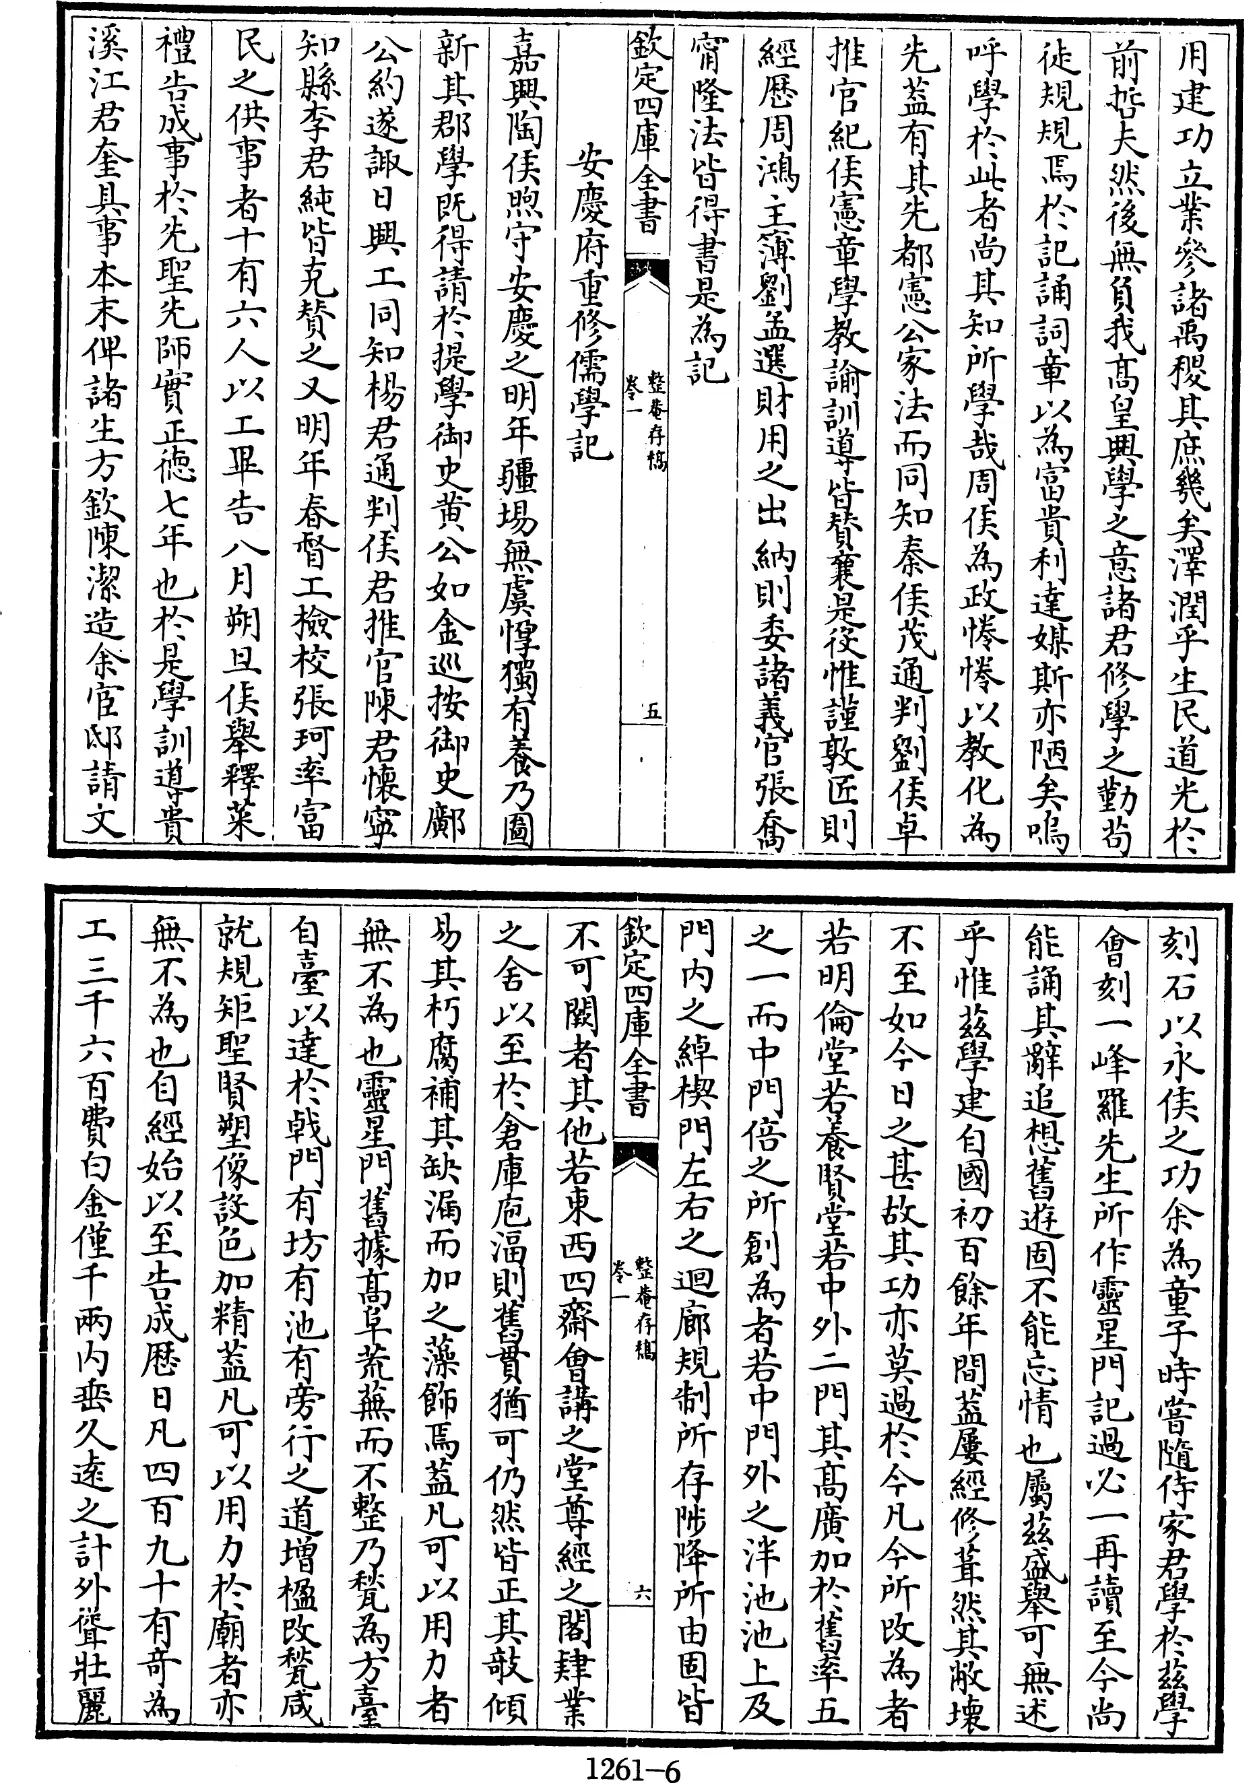 用建功立業參諸禹稷其庶幾矣澤潤乎生民道光於
前哲夫然後無負我髙皇興學之意諸君修學之勤茍
徒規規焉於記誦詞章以為富貴利達媒斯亦陋矣嗚
呼學於此者尚其知所學哉周侯為政惓惓以教化為
先蓋有其先都憲公家法而同知秦侯茂通判劉侯卓
推官紀侯憲章學教諭訓導皆賛襄是役惟謹敦匠則
經歴周鴻主簿劉孟選財用之出納則委諸義官張喬
甯隆法皆得書是為記
欽定四庫全書
整菴存稿
卷一
五
安慶府重修儒學記
嘉興陶侯煦守安慶之明年疆場無虞惸獨有養乃圖
新其郡學既得請於提學御史黄公如金巡按御史鄺
公約遂諏日興工同知楊君通判侯君推官陳君懷寧
知縣李君純皆克賛之又明年春督工檢校張珂率富
民之供事者十有六人以工畢告八月朔旦侯舉釋菜
禮告成事於先聖先師實正徳七年也於是學訓導貴
溪江君奎具事本末俾諸生方欽陳潔造余宦邸請文
刻石以永侯之功余為童子時嘗隨侍家君學於兹學
㑹刻一峰羅先生所作靈星門記過必一再讀至今尚
能誦其辭追想舊遊固不能忘情也屬兹盛舉可無述
乎惟兹學建自國初百餘年間蓋屢經修葺然其敝壊
不至如今日之甚故其功亦莫過於今凡今所改為者
若明倫堂若養賢堂若中外二門其髙廣加於舊率五
之一而中門倍之所創為者若中門外之泮池池上及
門内之綽楔門左右之迴廊規制所存陟降所由固皆
欽定四庫全書
整菴存稿
卷一
六
不可闕者其他若東西四齋㑹講之堂尊經之閣肄業
之舍以至於倉庫庖湢則舊貫猶可仍然皆正其欹傾
易其朽腐補其缺漏而加之藻飾焉蓋凡可以用力者
無不為也靈星門舊據髙阜荒蕪而不整乃甃為方臺
自臺以達於㦸門有坊有池有旁行之道增楹改甃咸
就規矩聖賢塑像設色加精蓋凡可以用力於廟者亦
無不為也自經始以至告成歴日凡四百九十有奇為
工三千六百費白金僅千兩内垂久逺之計外聳壯麗
1261-6